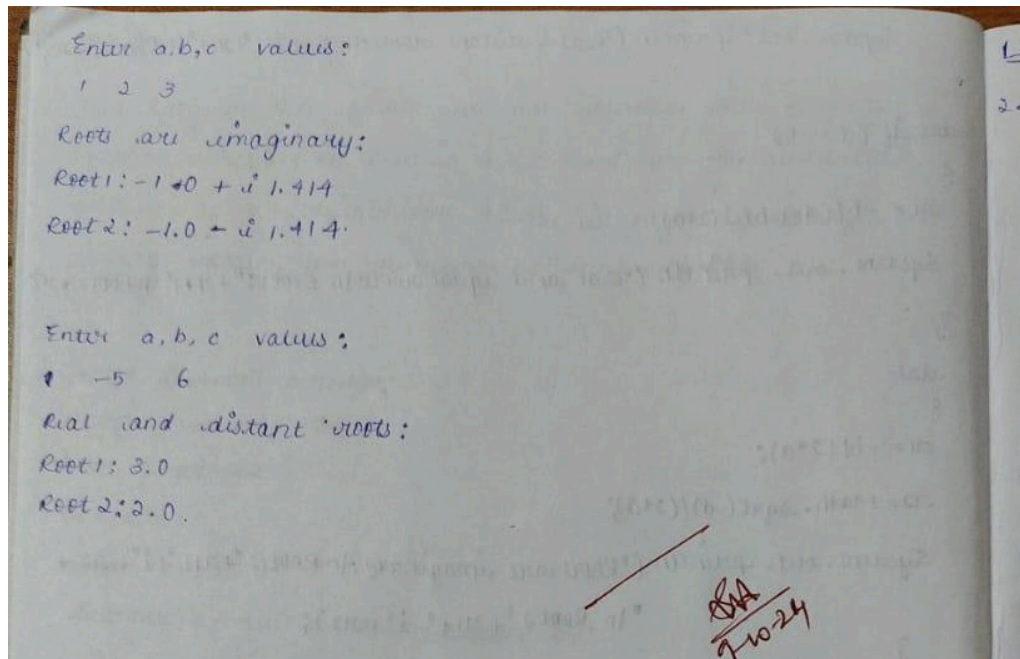 Enter a,b,c values:
1 2 3
Roots are imaginary:
Root1: -1.0 + i 1.414
Root2: -1.0 - i 1.414.
Enter a, b, c values:
1 -5 6
Real and distant roots:
Root1: 3.0
Root2: 2.0.
9-10-24
1
2.